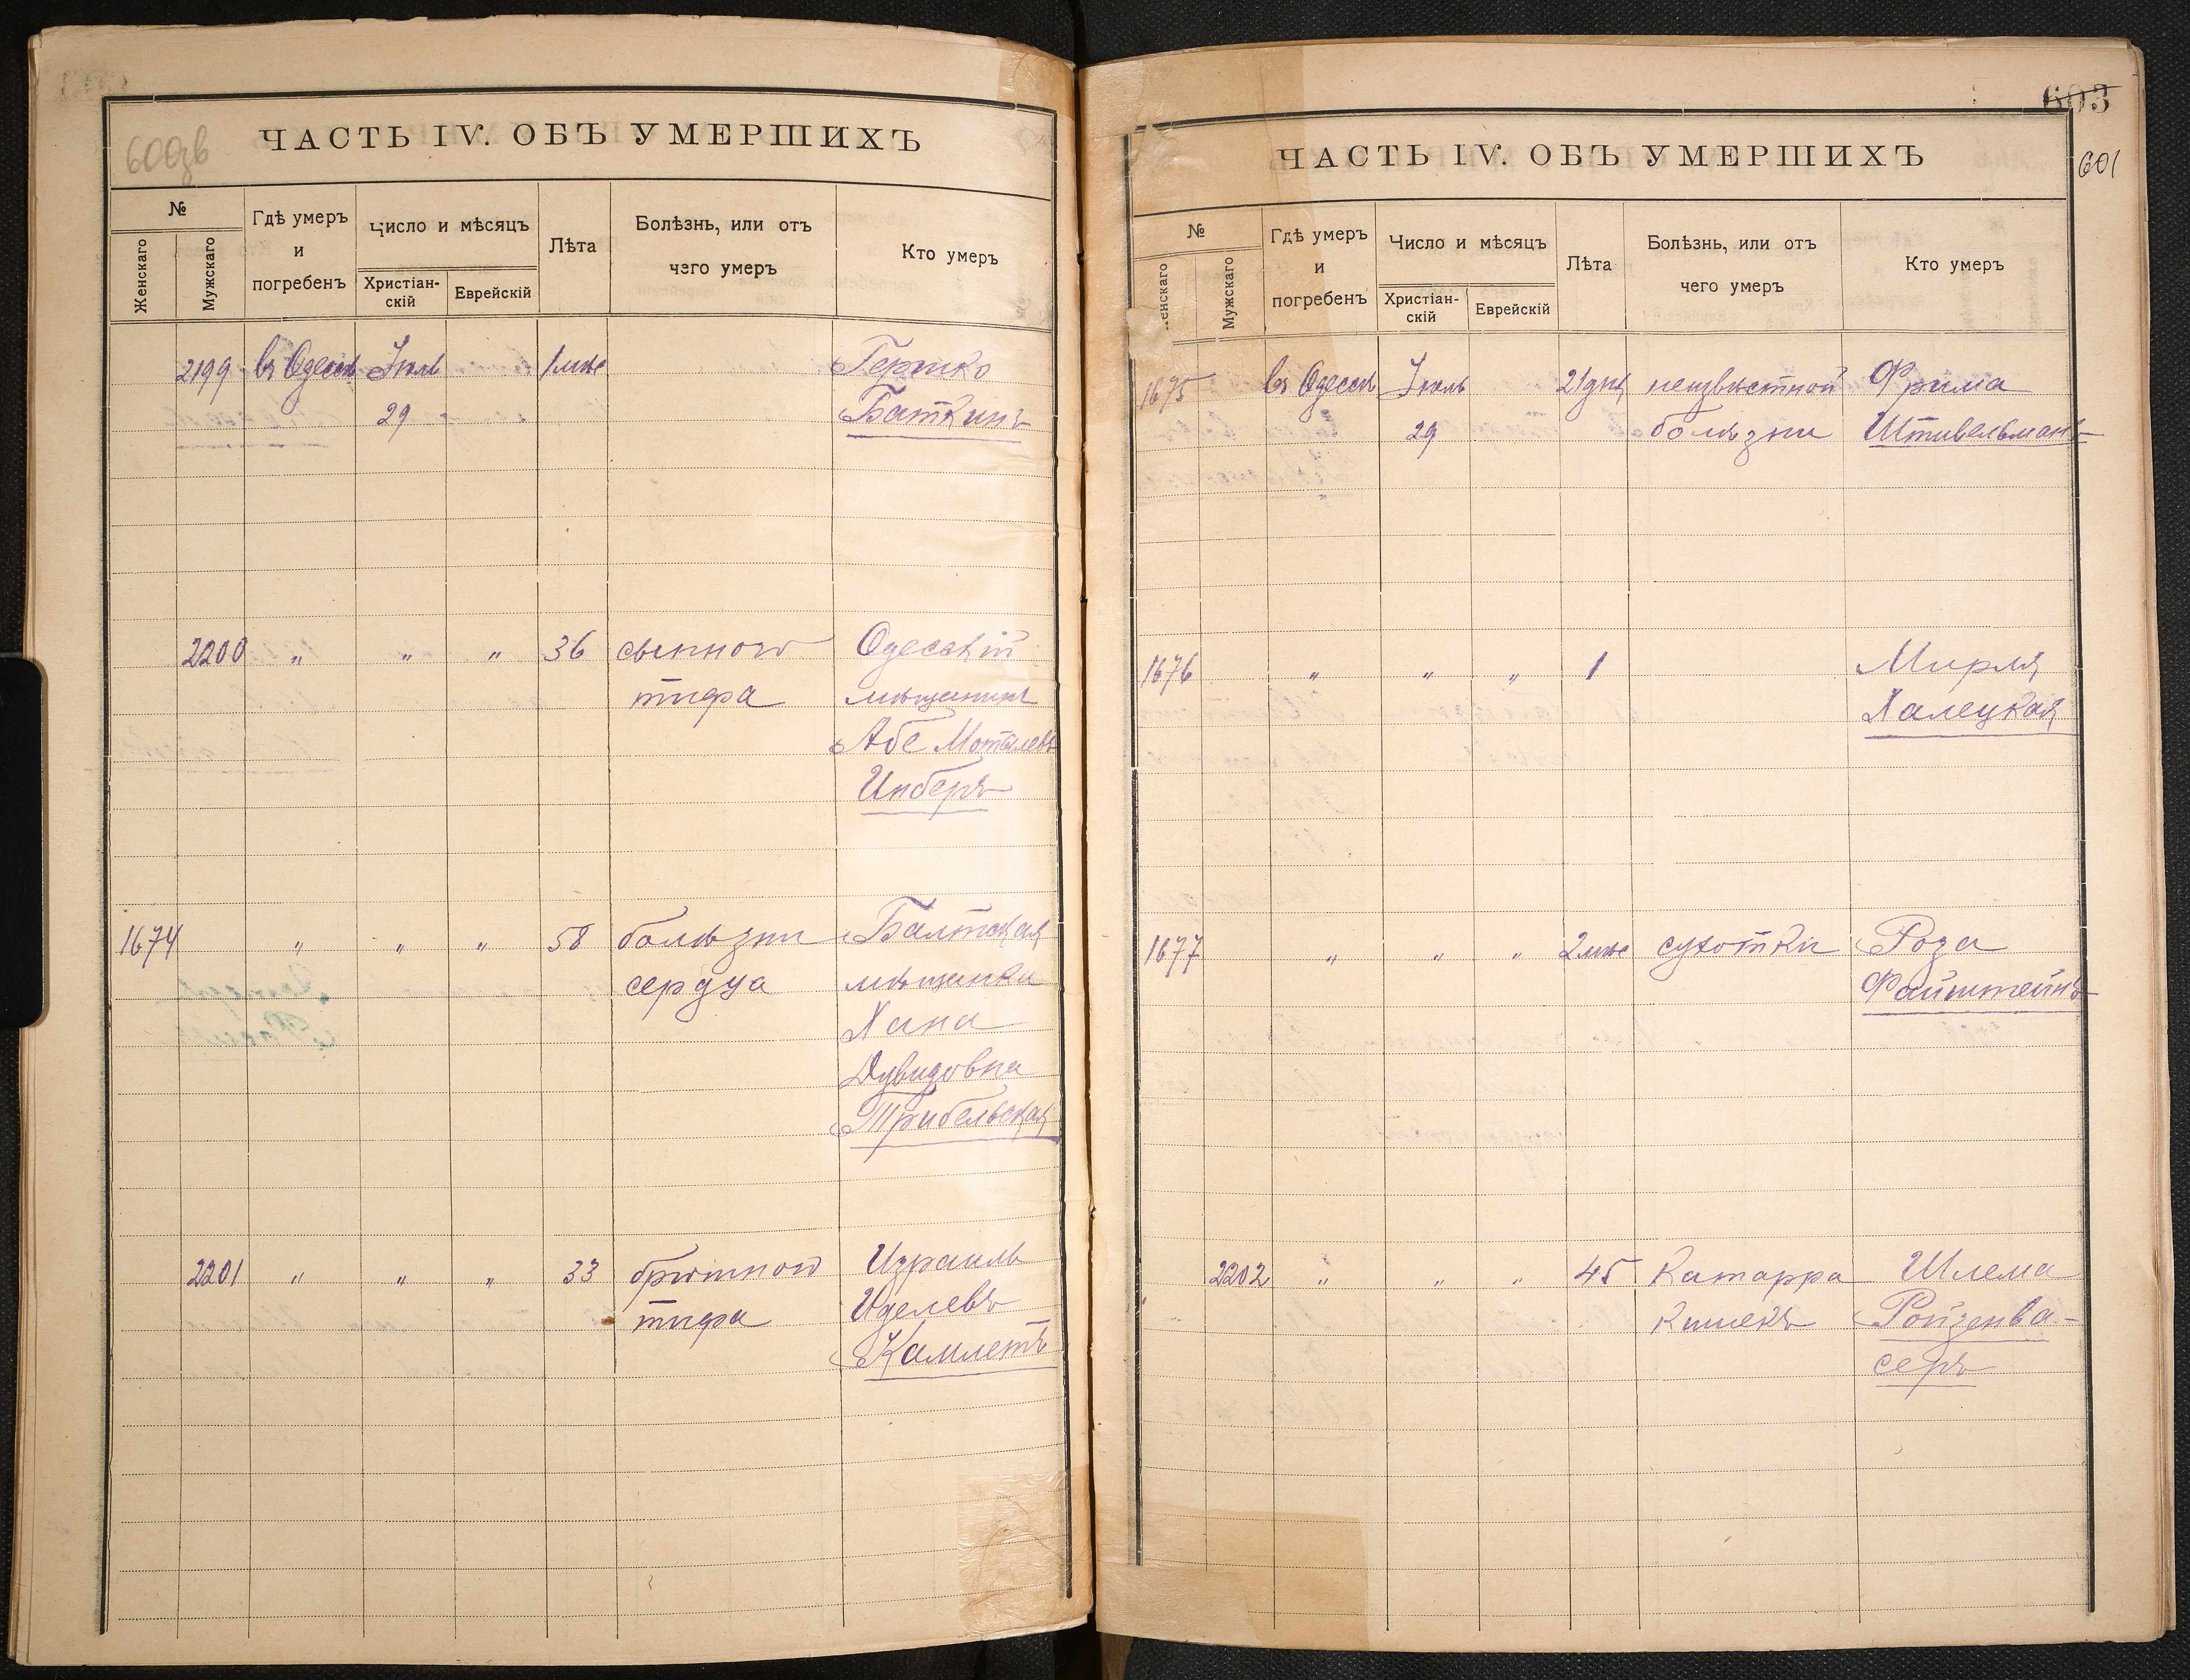 600зв
ЧАСТЬ IV. ОБЪ УМЕРШИХЪ
№
Женскаго
Мужскаго
Гдѣ умеръ
и
погребенъ
Число и мѣсяцъ
Христіан-
скій
Еврейскій
Лѣта
Болѣзнь, или отъ
чего умеръ
Кто умеръ
2199 въ Одессѣ Іюль 1 мѣс Гершко
29 Баткинъ
2200 " " " 36 сыпного Одесскій
тифа мѣщанинъ
Абе Мотелевъ
Инберъ
1674 " " " 58 болѣзни Балтская
сердца мѣщанка
Хана
Дувидовна
Трибельская
2201 " " " 33 брюшного Израиль
тифа Иделевъ
Камлетъ
603
601
ЧАСТЬ IV. ОБЪ УМЕРШИХЪ
№
Женскаго
Мужскаго
Гдѣ умеръ
и
погребенъ
Число и мѣсяцъ
Христіан-
скій
Еврейскій
Лѣта
Болѣзнь, или отъ
чего умеръ
Кто умеръ
1675 въ Одессѣ Іюль 21 дня неизвѣстной Фрима
29 болѣзни Штивельманъ
1676 " " " 1 Мирля
Халецкая
1677 " " " 2 мѣс сухотки Роза
Файнштейнъ
2202 " " " 45 Катарра Шлема
кишекъ Ройзенва-
серъ